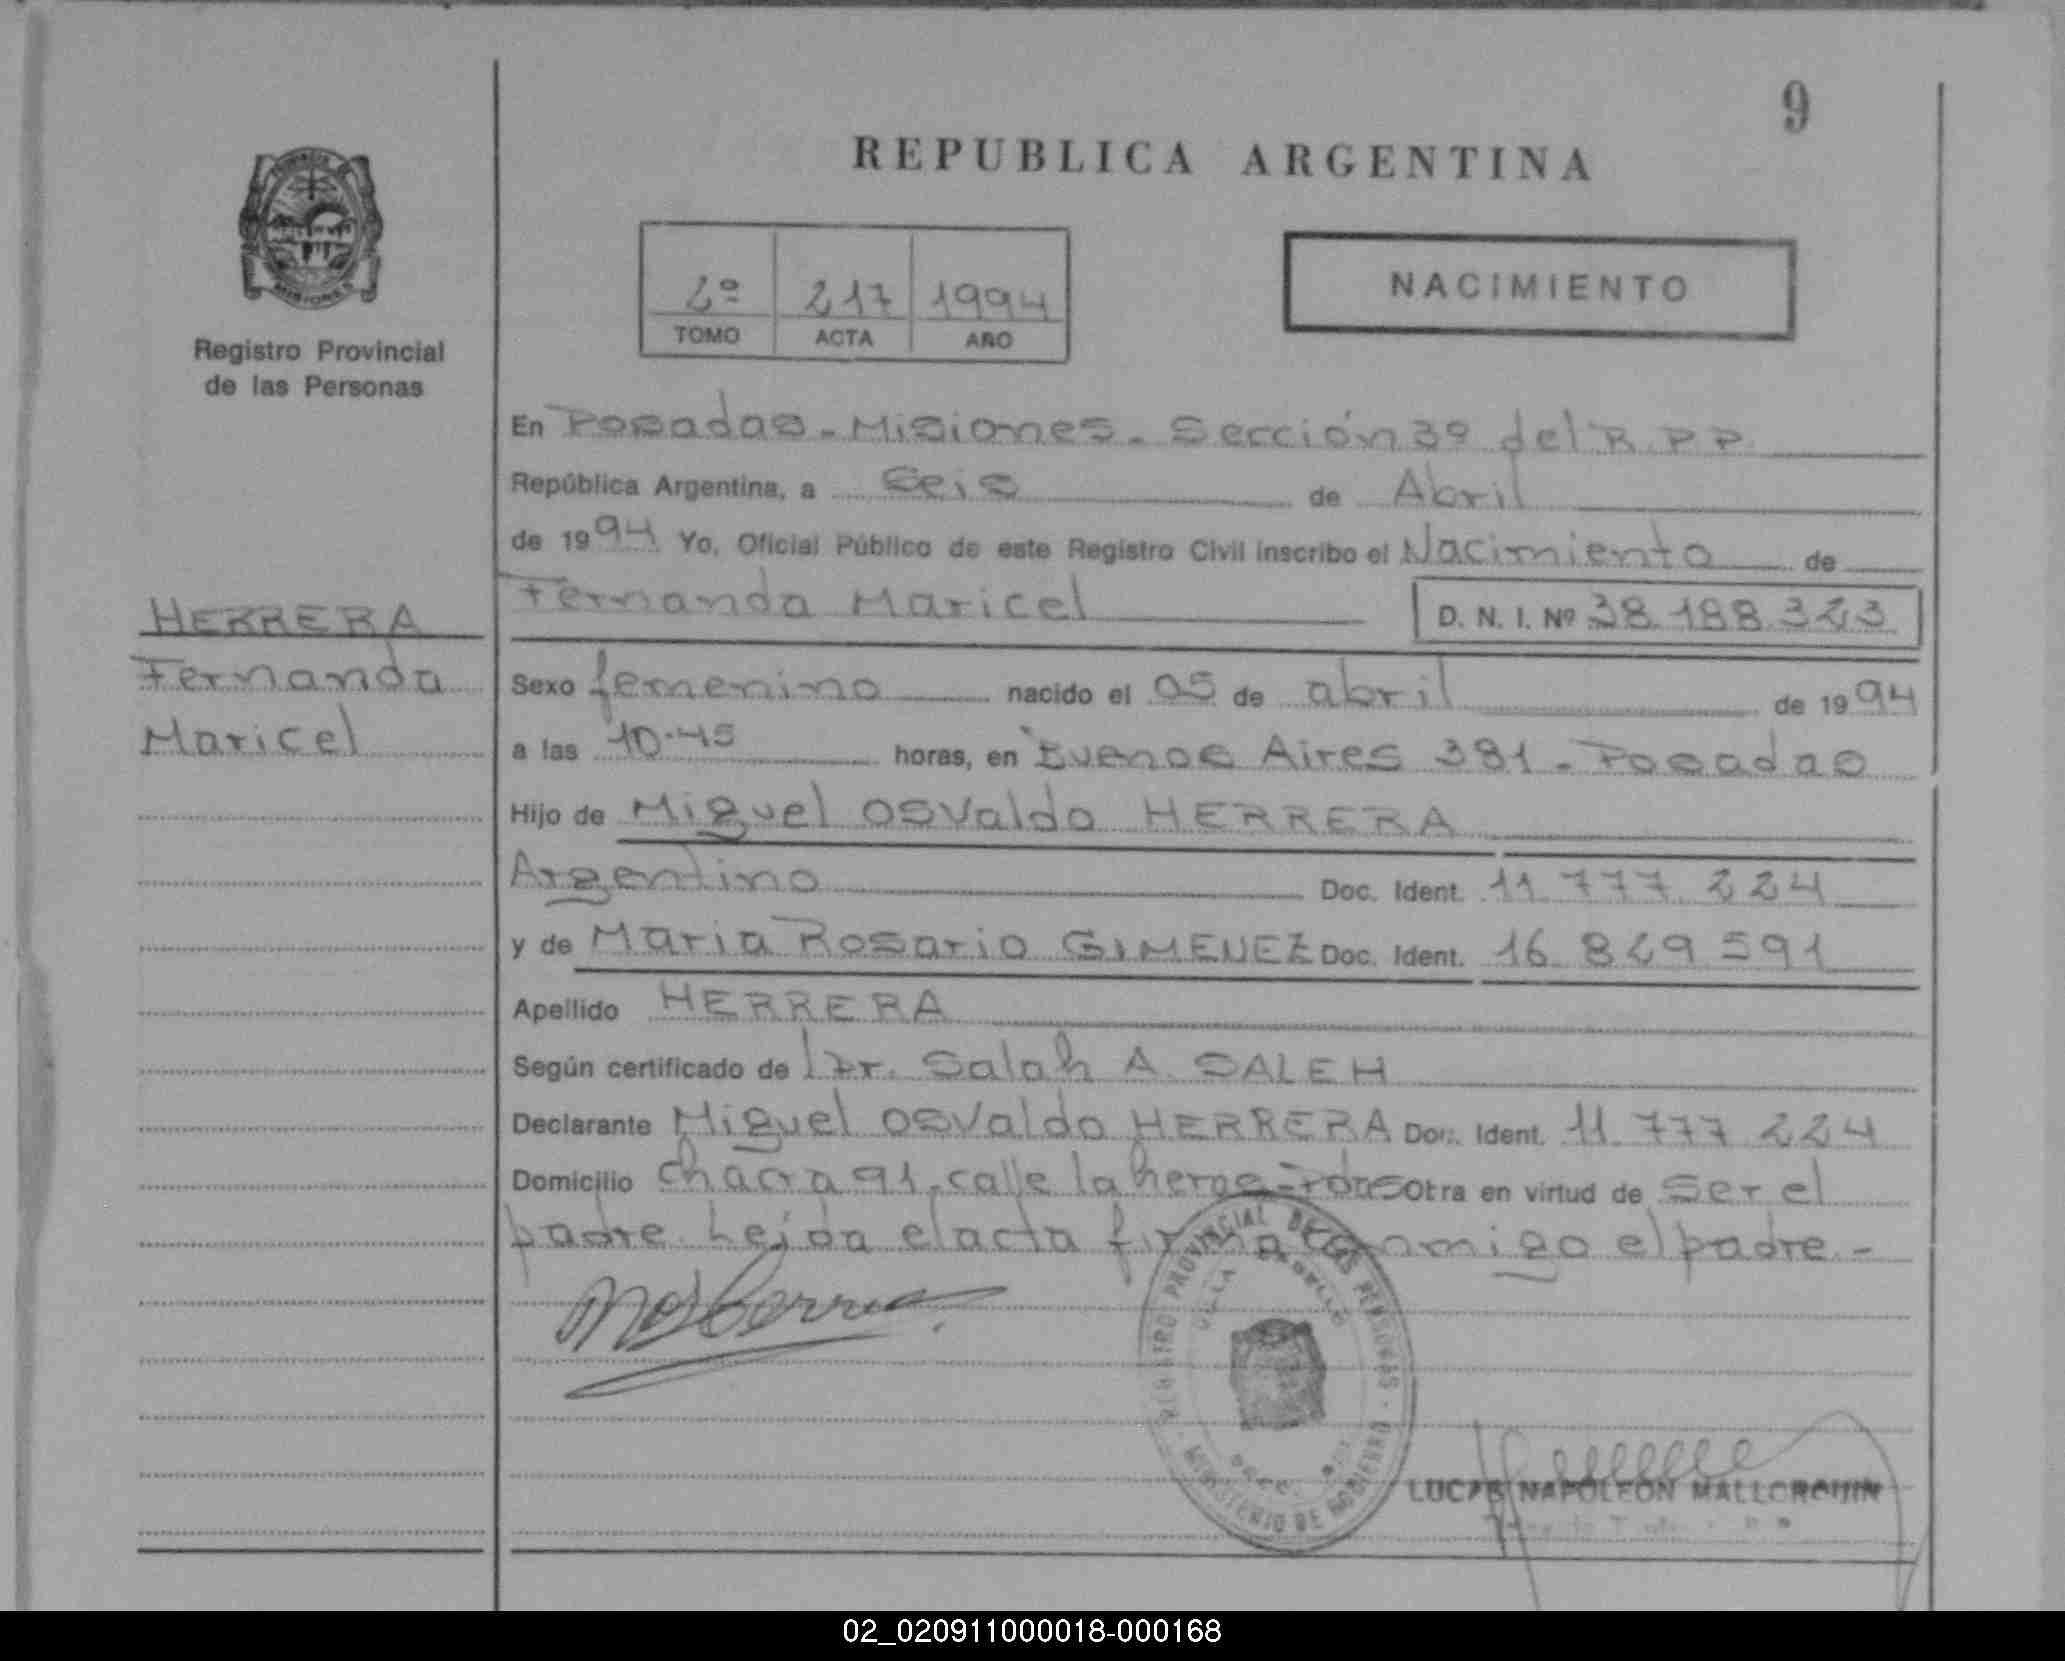 9
REPUBLICA ARGENTINA
NACIMIENTO
2º 217 1994
TOMO ACTA AÑO
MISIONES
Registro Provincial
de las Personas
En Posadas - Misiones - Sección 3º del R.P.P.
República Argentina, a Seis de Abril
de 1994 Yo, Oficial Público de este Registro Civil inscribo el Nacimiento de
Fernanda Maricel D. N. I. Nº 38.188.323
HERRERA
Fernanda
Maricel
Sexo femenino nacido el 05 de abril de 1994
a las 10.45 horas, en Buenos Aires 381 - Posadas
Hijo de Miguel Osvaldo HERRERA
Argentino Doc. Ident. 11.777.224
y de Maria Rosario GIMENEZ Doc. Ident. 16.829.591
Apellido HERRERA
Según certificado de Dr. Salah A. SALEH
Declarante Miguel Osvaldo HERRERA Doc. Ident. 11.777.224
Domicilio Chacra 91, calle la Obra en virtud de Ser el
padre. Leída el acta firma conmigo el padre.-
REGISTRO PROVINCIAL DE LAS PERSONAS
VILLA
MINISTERIO DE GOBIERNO
LUCAS NAPOLEON MALLORQUIN
02_020911000018-000168